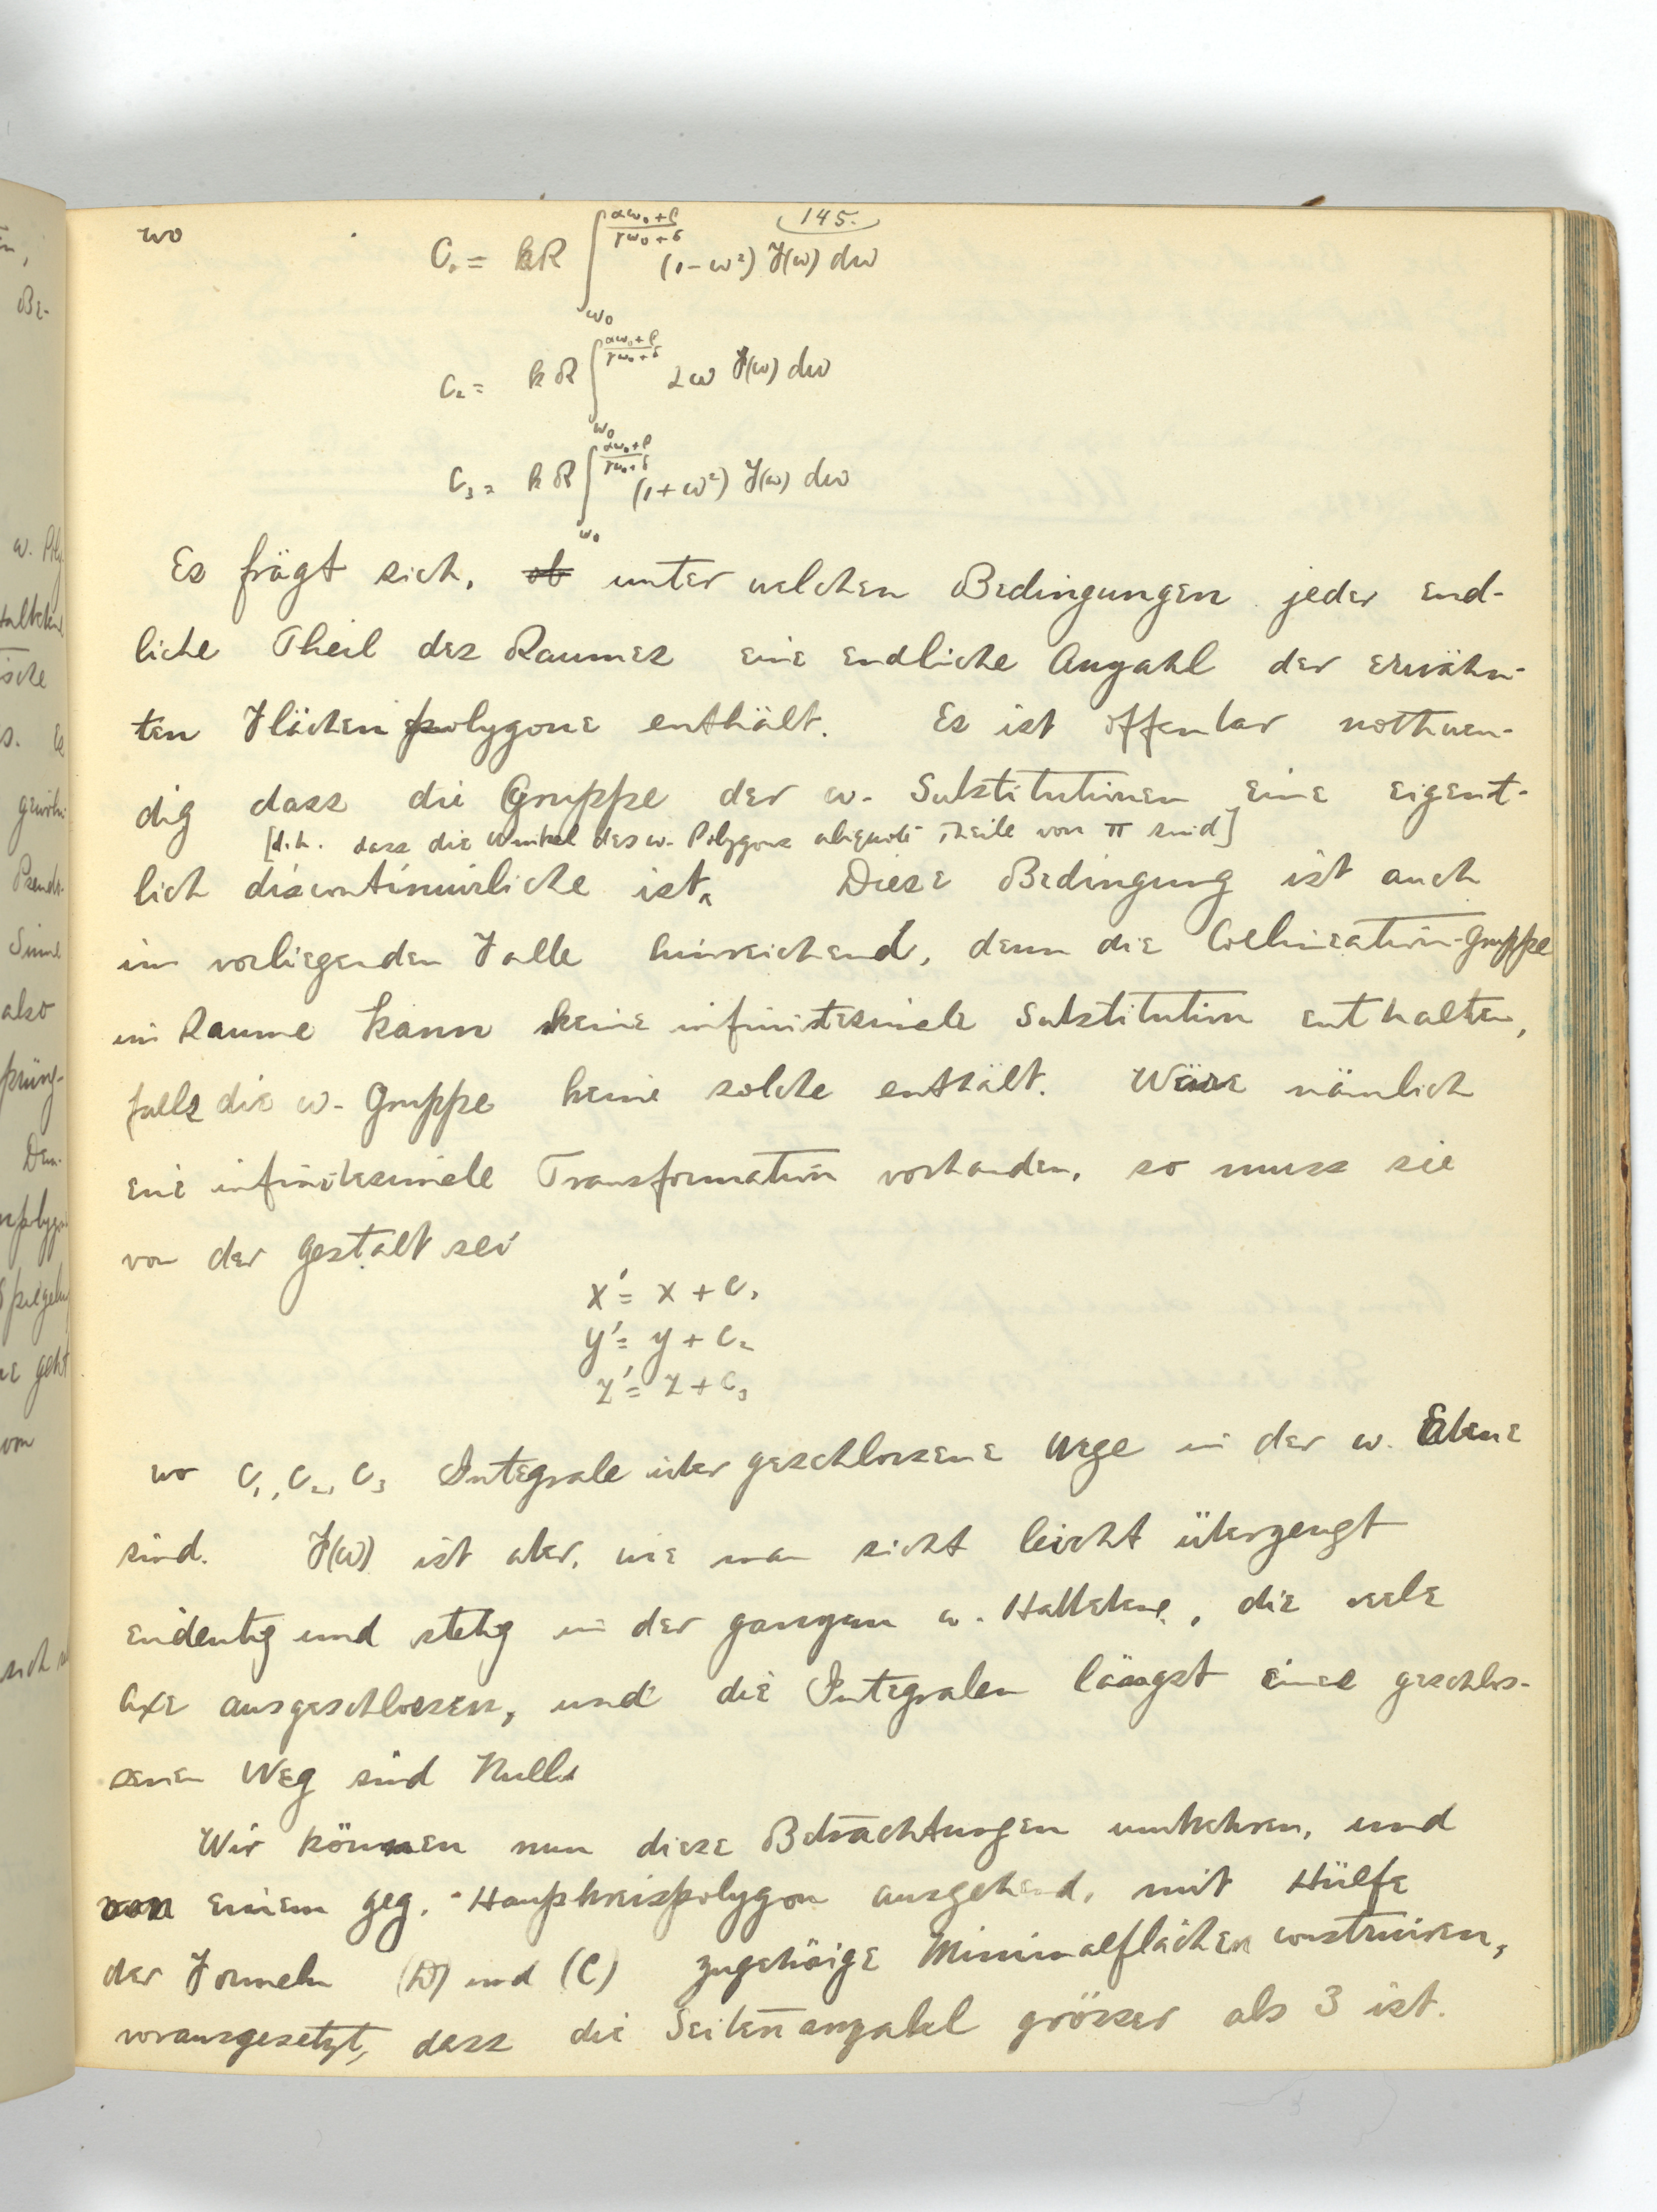 145.
wo
C₁ = kR ∫_{ω₀}^{(αω₀+β)/(γω₀+δ)} (1-ω²) F(ω) dω
C₂ = kR ∫_{ω₀}^{(αω₀+β)/(γω₀+δ)} 2ω F(ω) dω
C₃ = kR ∫_{ω₀}^{(αω₀+β)/(γω₀+δ)} (1+ω²) F(ω) dω
Es frägt sich, ob unter welchen Bedingungen jeder end-
liche Theil des Raumes eine endliche Anzahl der erwähn-
ten Flächenpolygone enthält. Es ist offenbar nothwen-
dig dass die Gruppe der ω. Substitutionen eine eigent-
[d.h. dass die Winkel des ω. Polygons aliquote Theile von π sind]
lich discontinuirliche ist. Diese Bedingung ist auch
im vorliegenden Falle hinreichend, denn die Collineation-Gruppe
im Raume kann keine infinitesimale Substitution enthalten,
falls die ω-Gruppe keine solche enthält. Wäre nämlich
eine infinitesimale Transformation vorhanden, so muss sie
von der Gestalt sei
x' = x + C₁
y' = y + C₂
z' = z + C₃
wo C₁, C₂, C₃ Integrale über geschlossene Wege in der ω. Ebene
sind. F(ω) ist aber, wie man sicht leicht überzeugt
eindeutig und stetig in der ganzen ω. Halbebene, die reele
Axe ausgeschlossen, und die Integralen längst eines geschlos-
senen Weg sind Null.
Wir können nun diese Betrachtungen umkehren, und
von einem geg. Haupkreispolygon ausgehend, mit Hülfe
der Formeln (D) und (C) zugehörige Minimalflächen construiren,
vorausgesetzt, dass die Seitenanzahl grösser als 3 ist.